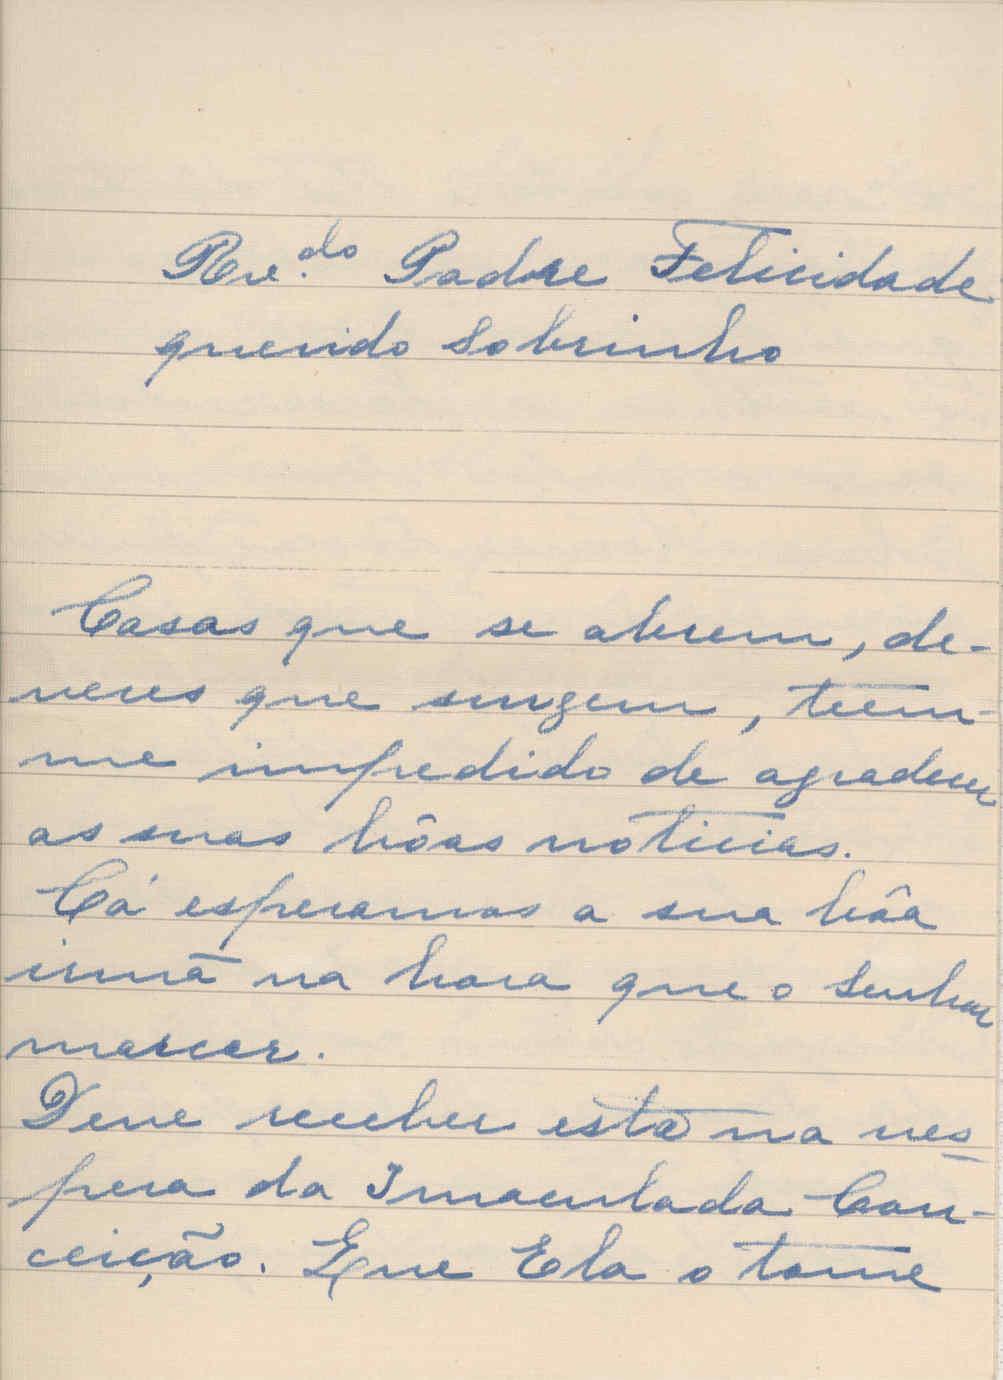 Rev.do Padre Felicidade
querido Sobrinho
Casas que se abrem, de-
veres que surgem, teem-
me impedido de agradecer
as suas bôas noticias.
Cá esperamos a sua bôa
irmã na hora que o Senhor
marcar.
Deve receber esta na ves
pera da Imaculada Con-
ceição. Que Ela o tome